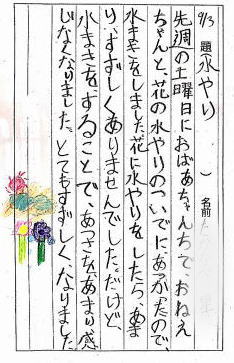 9/3 題 水やり ( ) 名前
先週の土曜日におばあちゃんちで、おねえ
ちゃんと、花の水やりのついでにあつかたので、
水まきをしました。花に水やりをしたら、あま
り、すずしくありませんでした。だけど、
水まきをすることで、あつさをあまり感
じなくなりました。とてもすずしくなりました